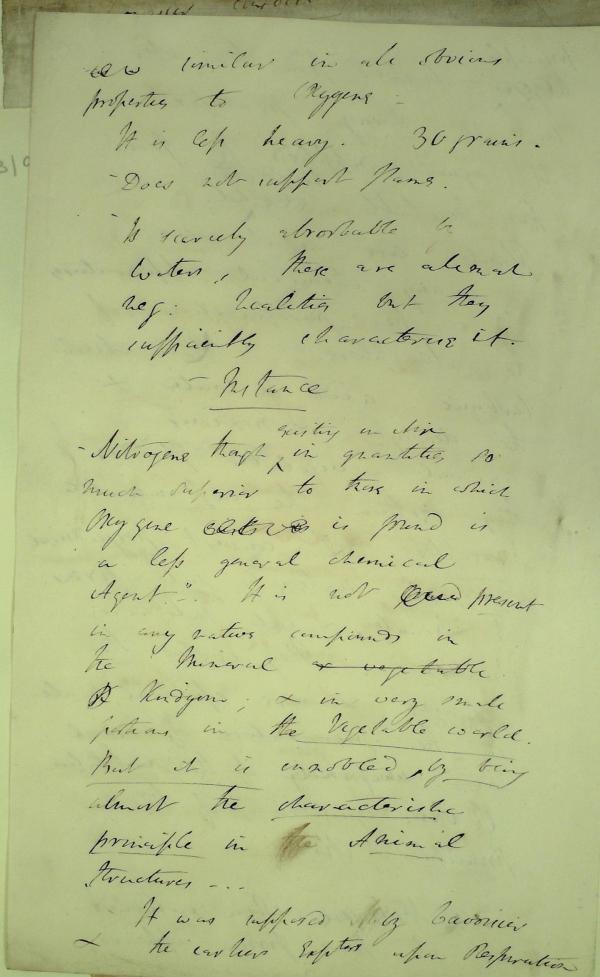 similar in all obvious
properties to Oxygene -
It is less heavy. 30 grains.
- Does not support flame.
- Is scarcely absorbable by
water, these are almost
neg: qualities but they
sufficiently characterise it.
- Instance
existing in Air
- Nitrogene though in quantities so
much superior to those in which
Oxygene is found is
a less general chemical
Agent. It is not present
in any native compounds in
the Mineral or vegetable
Kingdom; & in very small
portions in the Vegetable world.
But it is ennobled by being
almost the characteristic
principle in the Animal
structures - - -
It was supposed by Lavoisier
& the earliers Expters upon Respiration